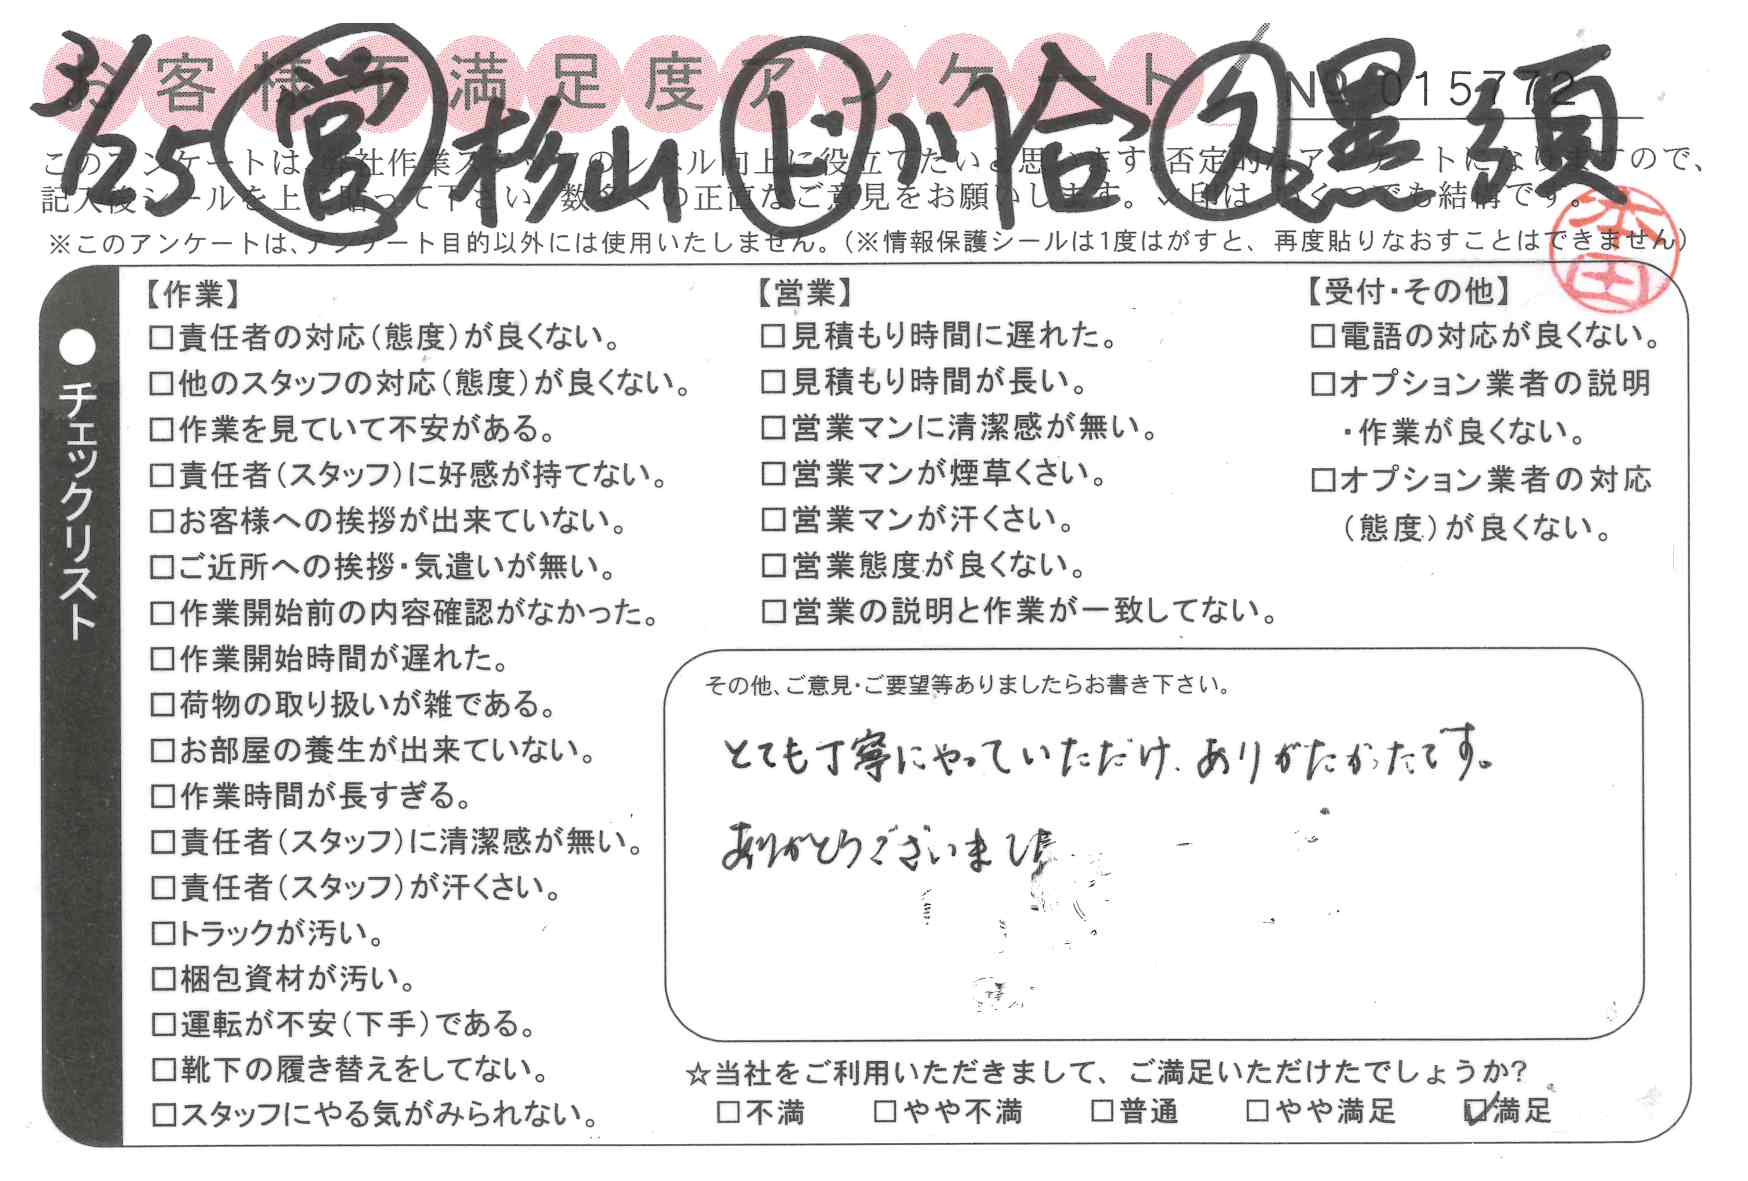 お客様不満足度アンケート
№ 015772
3/25 営 杉山 ド 小川 合 ス 黒須
このアンケートは、当社作業スタッフのレベル向上に役立てたいと思います。否定的なアンケートになりますので、
記入後シールを上に貼って下さい。数多くの正直なご意見をお願いします。✓印は、いくつでも結構です。
※このアンケートは、アンケート目的以外には使用いたしません。(※情報保護シールは1度はがすと、再度貼りなおすことはできません)
本田
●チェックリスト
【作業】
□責任者の対応(態度)が良くない。
□他のスタッフの対応(態度)が良くない。
□作業を見ていて不安がある。
□責任者(スタッフ)に好感が持てない。
□お客様への挨拶が出来ていない。
□ご近所への挨拶・気遣いが無い。
□作業開始前の内容確認がなかった。
□作業開始時間が遅れた。
□荷物の取り扱いが雑である。
□お部屋の養生が出来ていない。
□作業時間が長すぎる。
□責任者(スタッフ)に清潔感が無い。
□責任者(スタッフ)が汗くさい。
□トラックが汚い。
□梱包資材が汚い。
□運転が不安(下手)である。
□靴下の履き替えをしてない。
□スタッフにやる気がみられない。
【営業】
□見積もり時間に遅れた。
□見積もり時間が長い。
□営業マンに清潔感が無い。
□営業マンが煙草くさい。
□営業マンが汗くさい。
□営業態度が良くない。
□営業の説明と作業が一致してない。
【受付・その他】
□電語の対応が良くない。
□オプション業者の説明
・作業が良くない。
□オプション業者の対応
(態度)が良くない。
その他、ご意見・ご要望等ありましたらお書き下さい。
とても丁寧にやっていただけ、ありがたかったです。
ありがとうございました
☆当社をご利用いただきまして、ご満足いただけたでしょうか?
□不満 □やや不満 □普通 □やや満足 ☑満足